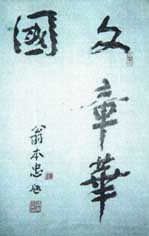 文章華
國
翁本忠題